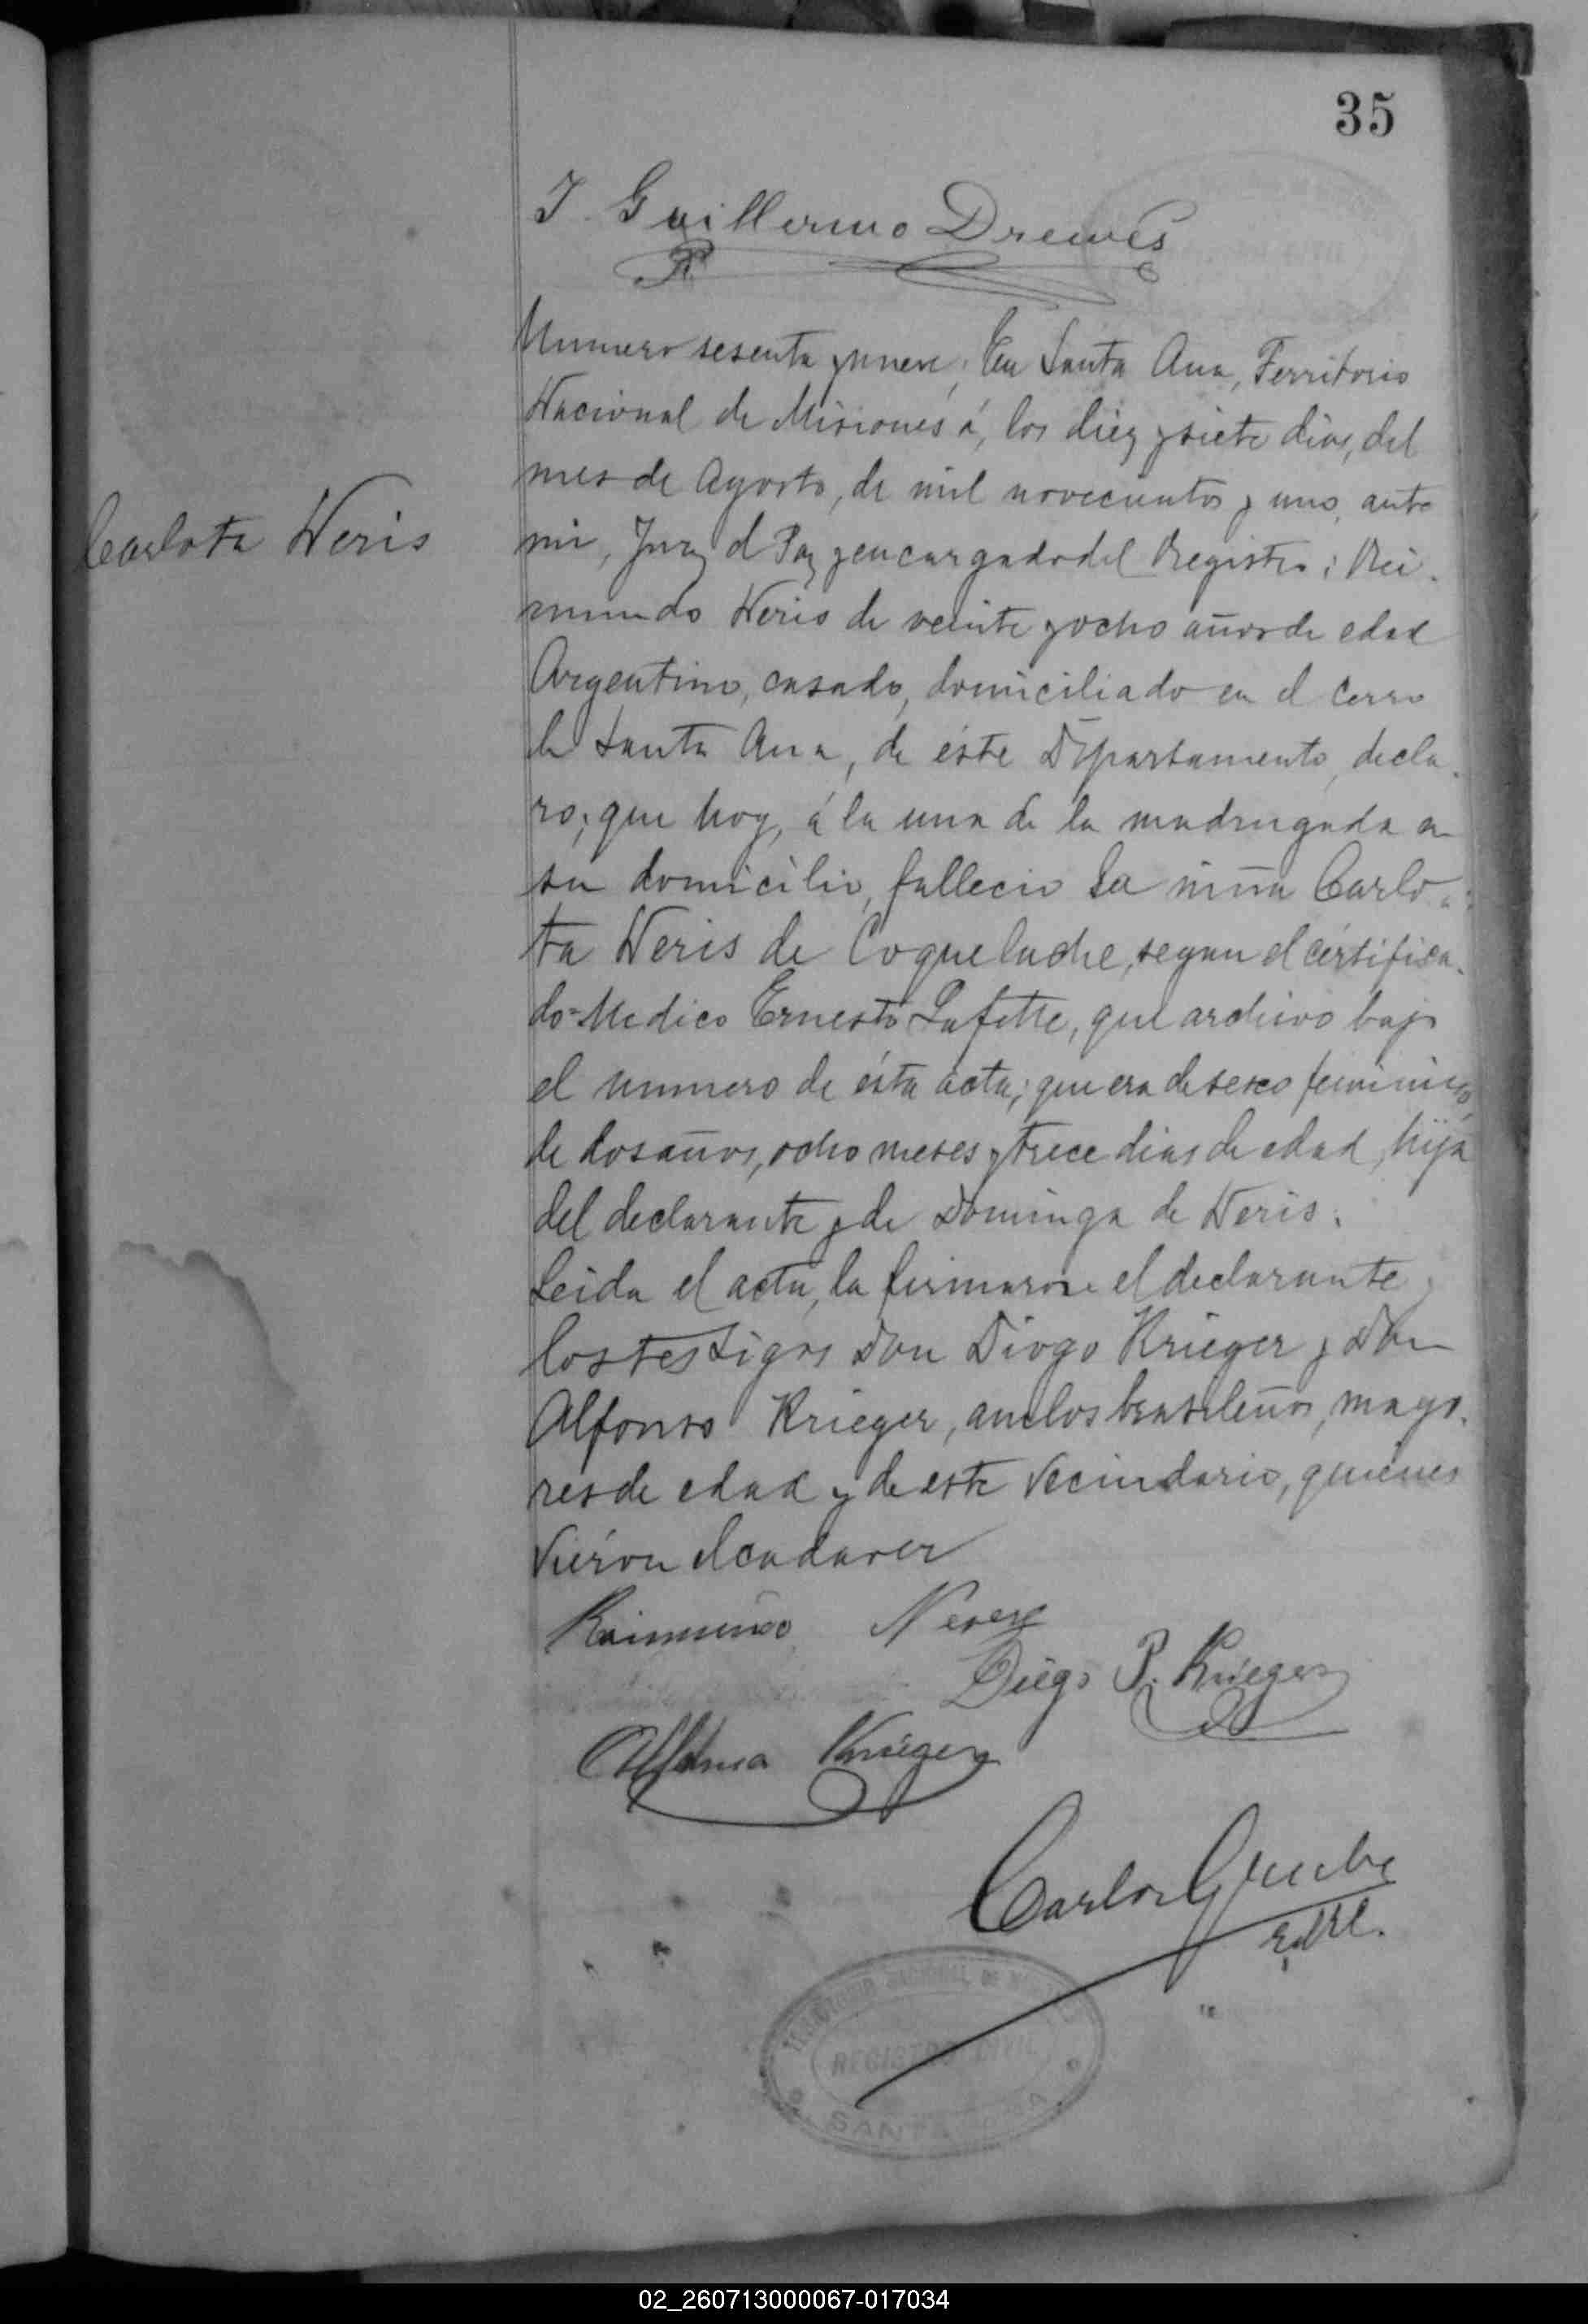 35
J. Guillermo Drewes
Numero sesenta y nueve; En Santa Ana, Territorio
Nacional de Misiones á, los diez y siete dias, del
mes de Agosto, de mil novecientos y uno, ante
Carlota Neris
mi, Juez d Paz y encargado del Registro; Rei-
mundo Neris de veinte y ocho años de edad
Argentino, casado, domiciliado en el Cerro
de Santa Ana, de éste Departamento, decla-
ro; que hoy, á la una de la madrugada en
su domicilio, fallecio la niña Carlo-
ta Neris de Coqueluche, segun el certifica-
do Medico Ernesto Lafitte, que archivo bajo
el numero de ésta acta; que era de sexo feminino,
de dos años, ocho meses y trece dias de edad, hija
del declarante y de Dominga de Neris.
Leida el acta, la firmaron el declarante y
los testigos Don Diogo Krieger y Don
Alfonso Krieger, ambos brasileños, mayo-
res de edad y de este Vecindario, quienes
Vieron el cadaver
Raimundo Neres
Diego P. Krieger
Krieger
Carlos
TERRITORIO NACIONAL DE
REGISTRO CIVIL
SANTA ANA
02_260713000067-017034